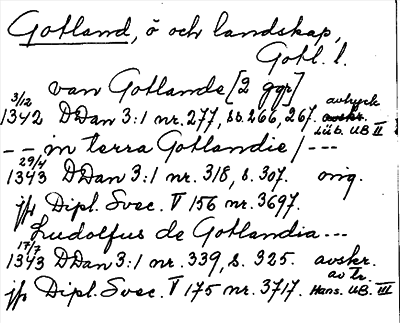 Gotland, ö och landskap,
Gotl. l.
van Gotlande [2 ggr]
3/12 avtryck
1342 DDan 3:1 nr. 277, ss. 266, 267. avskr.
Lüb. UB II
- - in terra Gotlandie / - - -
29/4
1343 DDan 3:1 nr. 318, s. 307. orig.
jfr Dipl. Svec. V 156 nr. 3697.
Ludolfus de Gotlandia - - -
17/7
1343 DDan 3:1 nr. 339, s. 325. avskr.
av tr.
jfr Dipl. Svec. V 175 nr. 3717. Hans. UB. III